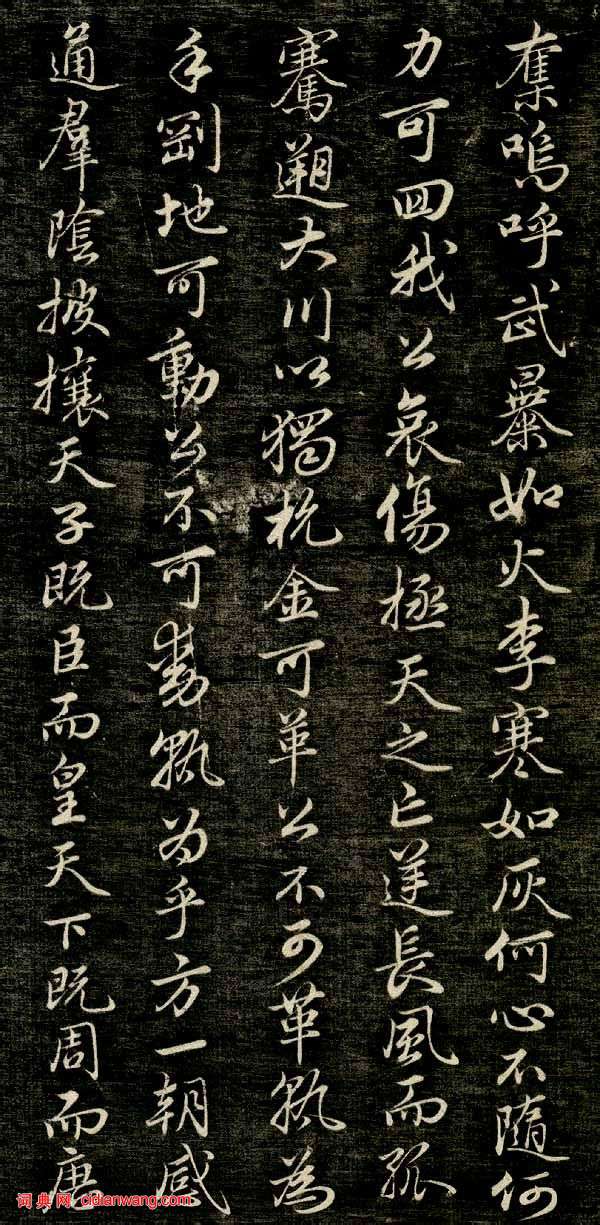 奪嗚呼武暴如火李寒如灰何心不隨何
力可回我公哀傷拯天之亡逆長風而孤
騫遡大川以獨杭金可革公不可革孰為
乎剛地可動公不可動孰為乎方一朝感
通羣陰披攘天子既臣而皇天下既周而唐
词典网 cidianwang.com